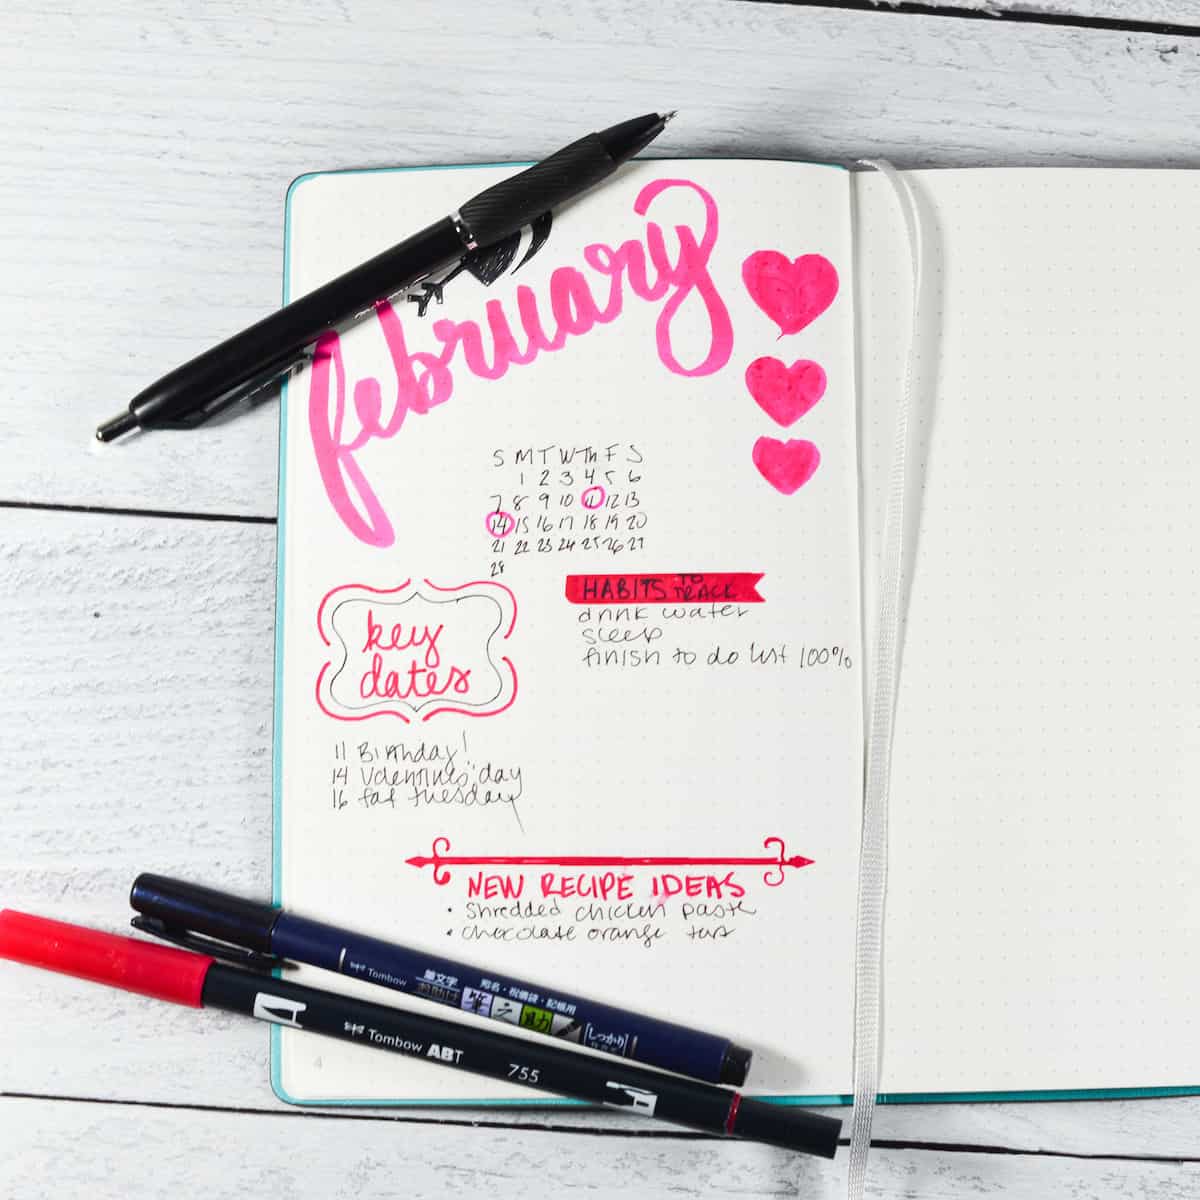 february
S M T W Th F S
1 2 3 4 5 6
7 8 9 10 11 12 13
14 15 16 17 18 19 20
21 22 23 24 25 26 27
28
HABITS TO TRACK
drink water
sleep
finish to do list 100%
key
dates
11 Birthday!
14 Valentines' day
16 fat tuesday
NEW RECIPE IDEAS
• Shredded chicken pasta
• chocolate orange tart
Tombow 筆文字 宛名・祝儀袋・記帳用
筆 文 助 [しっかり]
Tombow ABT 755
4